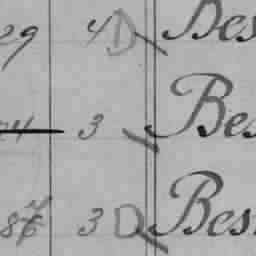 29 4 D Bes
24 3 Bes
87 3 D Bes